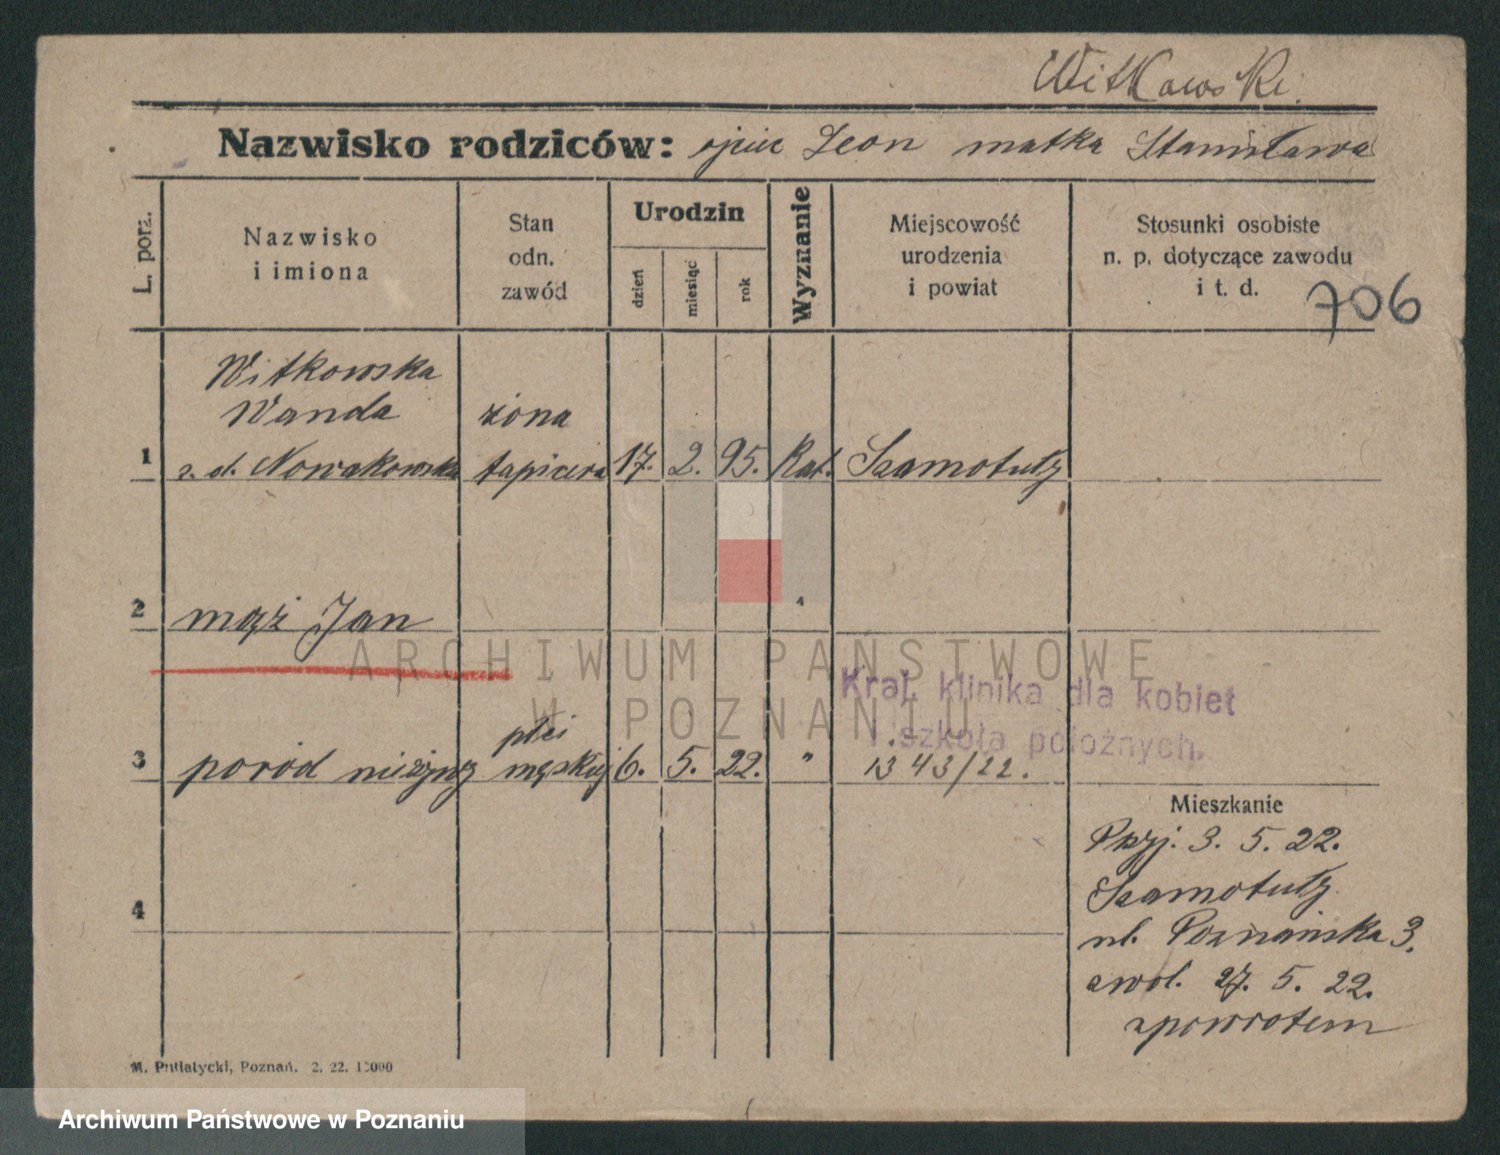 Witkowski.
Nazwisko rodziców: ojciec Leon matka Stanisława
L. porz.
Nazwisko
i imiona
Stan
odn.
zawód
Urodzin
dzień
miesiąc
rok
Wyznanie
Miejscowość
urodzenia
i powiat
Stosunki osobiste
n. p. dotyczące zawodu
i t. d.
706
Witkowska
Wanda
żona
1 z. d. Nowakowska tapicera 17. 2. 95. Kat. Szamotuły
2 mąż Jan
ARCHIWUM PAŃSTWOWE
W POZNANIU
Kraj. klinika dla kobiet
i szkoła położnych.
płci
3 poród nieżywy męskiej 6. 5. 22. " 1343/22.
Mieszkanie
Przyj. 3. 5. 22.
Szamotuły
ul. Poznańska 3.
zwol. 27. 5. 22.
zpowrotem
4
M. Putiatycki, Poznań. 2. 22. 10000
Archiwum Państwowe w Poznaniu